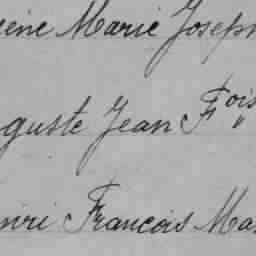 ène Marie Joseph
guste Jean Fois
nri Francois Ma